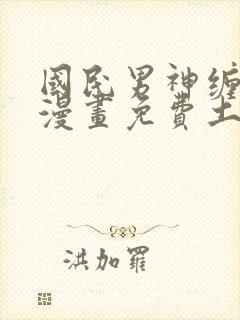 國民男神纏
漫畫免費土
洪加羅